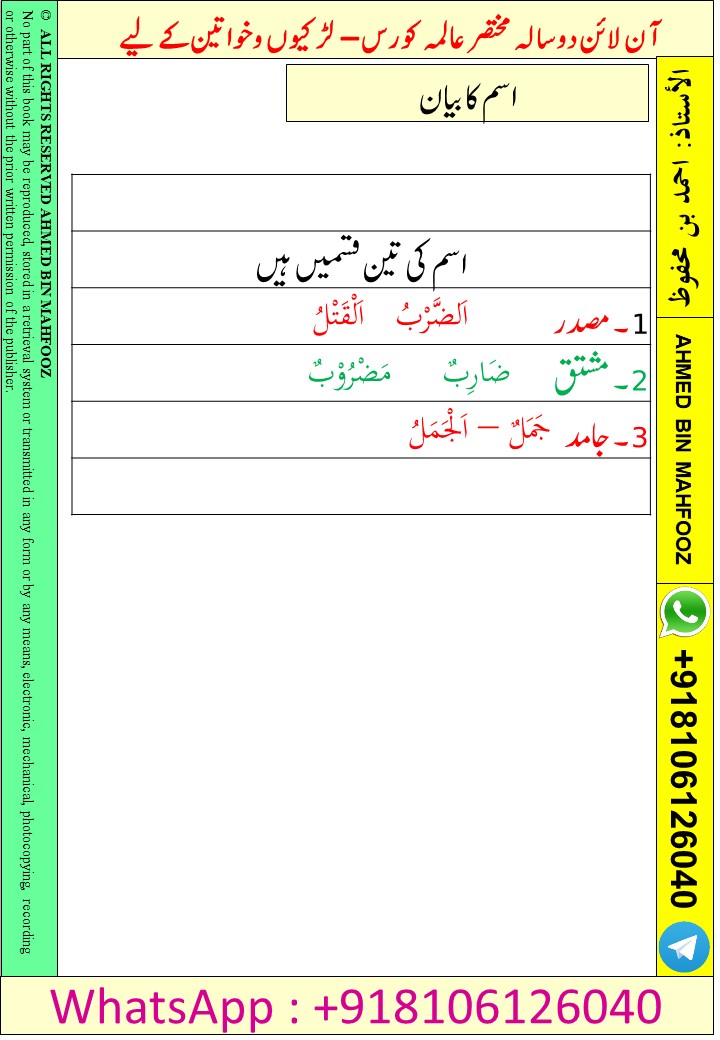 آن لائن دو سالہ مختصر عالمہ کورس – لڑکیوں و خواتین کے لیے
اسم کا بیان
اسم کی تین قسمیں ہیں
1۔ مصدر اَلضَّرْبُ اَلْقَتْلُ
2۔ مشتق ضَارِبٌ مَضْرُوْبٌ
3۔ جامد جَمَلٌ – اَلْجَمَلُ
الأستاذ: احمد بن محفوظ
AHMED BIN MAHFOOZ
+918106126040
© ALL RIGHTS RESERVED AHMED BIN MAHFOOZ
No part of this book may be reproduced, stored in a retrieval system or transmitted in any form or by any means, electronic, mechanical, photocopying, recording
or otherwise without the prior written permission of the publisher.
WhatsApp : +918106126040